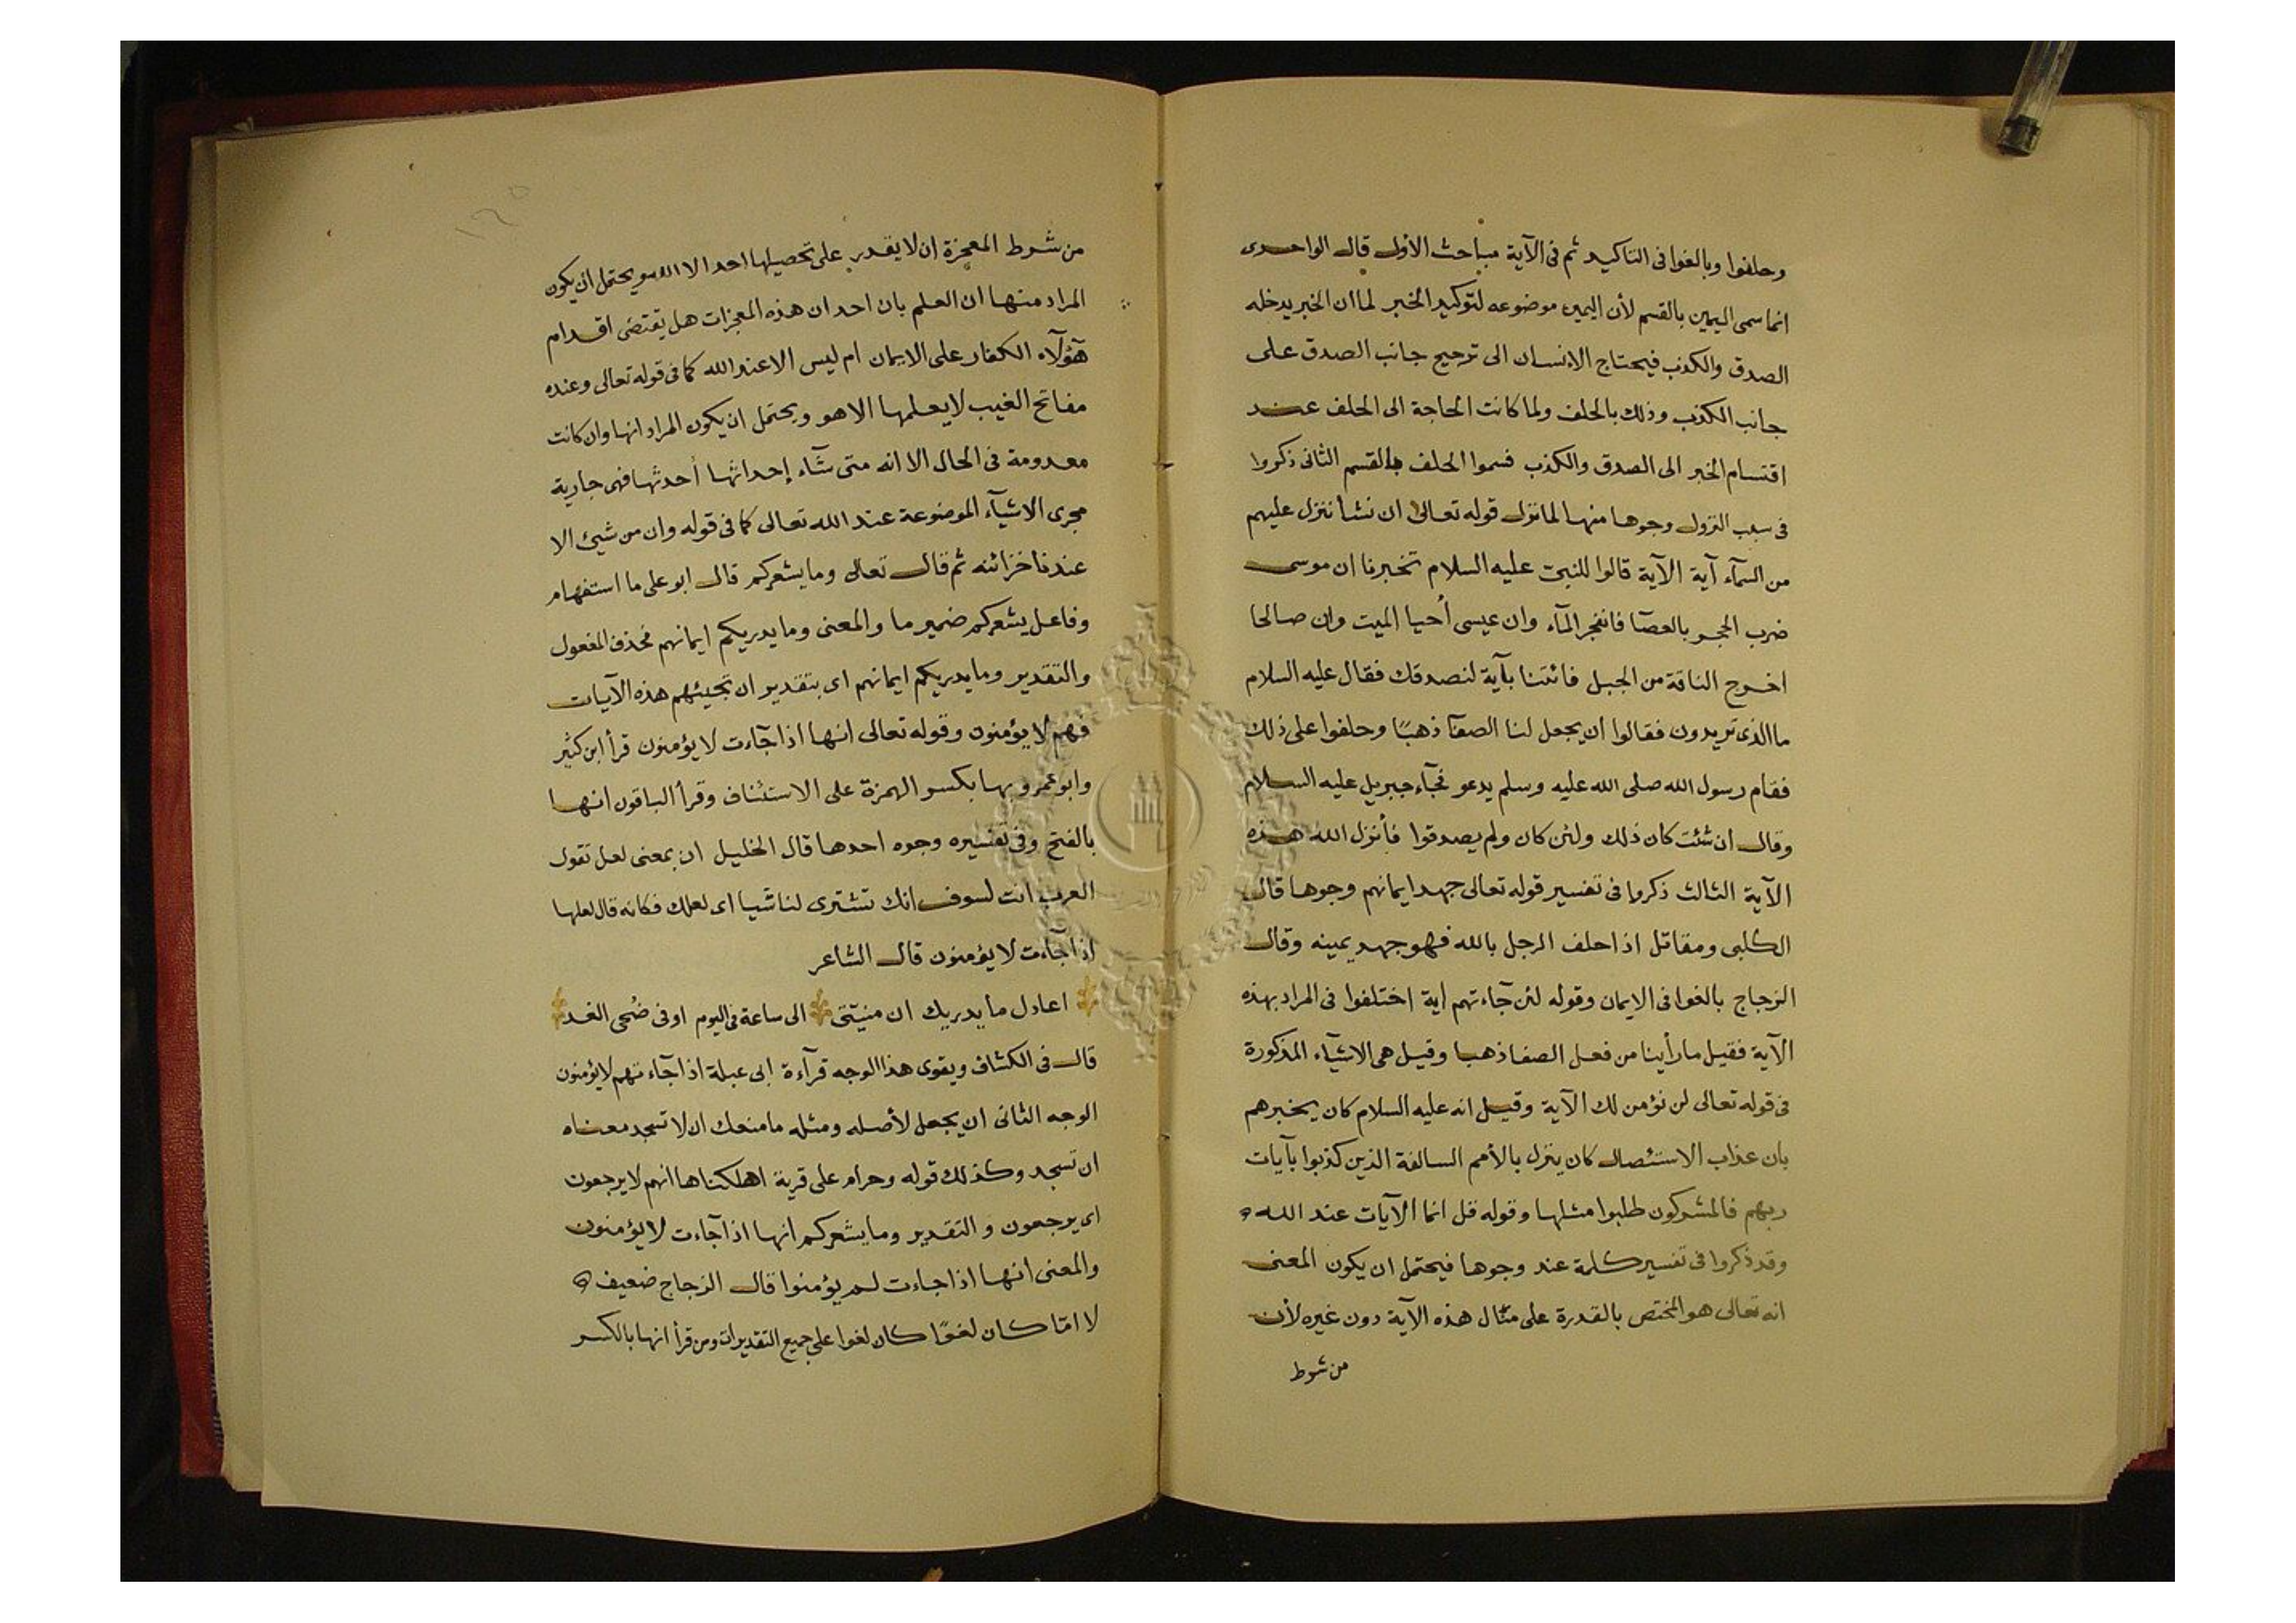 وحلفوا وبالغوا فى التاكيد ثم فى الآية مباحث الأول قال الواحدى
انما سمى اليمين بالقسم لأن اليمين موضوعه لتوكيد الخبر لما ان الخبر يدخله
الصدق والكذب فيحتاج الانسان الى ترجيح جانب الصدق على
جانب الكذب وذلك بالحلف ولما كانت الحاجة الى الحلف عند
اقتسام الخبر الى الصدق والكذب فسموا الحلف بالقسم الثانى ذكروا
فى سبب النزول وجوها منها لما نزل قوله تعالى ان نشأ ننزل عليهم
من السمآء آية الآية قالوا للنبى عليه السلام تخبرنا ان موسى
ضرب الحجر بالعصا فانفجر المآء وان عيسى أحيا الميت وان صالحا
اخرج الناقة من الجبل فائتنا بآية لنصدقك فقال عليه السلام
ما الذى تريدون فقالوا ان يجعل لنا الصفا ذهبًا وحلفوا على ذلك
فقام رسول الله صلى الله عليه وسلم يدعو فجآء جبريل عليه السلام
وقال ان شئت كان ذلك ولئن كان ولم يصدقوا فأنزل الله هذه
الآية الثالث ذكروا فى تفسير قوله تعالى جهد ايمانهم وجوها قال
الكلبى ومقاتل اذا حلف الرجل بالله فهو جهد يمينه وقال
الزجاج بالغوا فى الايمان وقوله لئن جآءتهم اية اختلفوا فى المراد بهذه
الآية فقيل ما رأينا من فعل الصفا ذهبا وقيل هى الاشيآء المذكورة
فى قوله تعالى لن نؤمن لك الآية وقيل انه عليه السلام كان يخبرهم
بان عذاب الاستئصال كان ينزل بالأمم السالفة الذين كذبوا بآيات
ربهم فالمشركون طلبوا مثلها وقوله قل انما الآيات عند الله
وقد ذكروا فى تفسير كلمة عند وجوها فيحتمل ان يكون المعنى
انه تعالى هو المختص بالقدرة على مثال هذه الآية دون غيره لأن
من شرط
من شرط المعجزة ان لا يقدر على تحصيلها احد الا الله ويحتمل ان يكون
المراد منها ان العلم بان احد ان هذه المعجزات هل يقتضى اقدام
هؤلآء الكفار على الايمان ام ليس الا عند الله كما فى قوله تعالى وعنده
مفاتح الغيب لا يعلمها الا هو ويحتمل ان يكون المراد انها وان كانت
معدومة فى الحال الا انه متى شآء إحداثها أحدثها فهى جارية
مجرى الاشيآء الموضوعة عند الله تعالى كما فى قوله وان من شيئ الا
عندنا خزائنه ثم قال تعالى وما يشعركم قال ابو على ما استفهام
وفاعل يشعركم ضمير ما والمعنى وما يدريكم ايمانهم فحذف المفعول
والتقدير وما يدريكم ايمانهم اى بتقدير ان تجيئهم هذه الآيات
فهم لا يؤمنون وقوله تعالى انها اذا جآءت لا يؤمنون قرأ ابن كثير
وابو عمرو بها بكسر الهمزة على الاستئناف وقرأ الباقون انها
بالفتح وفى تفسيره وجوه احدها قال الخليل ان بمعنى لعل تقول
العرب انت لسوف انك تشترى لنا شيا اى لعلك فكانه قال لعلها
اذا جآءت لا يؤمنون قال الشاعر
اعادل ما يدريك ان منيّتى الى ساعة فى اليوم او فى ضُحى الغد
قال فى الكشاف ويقوى هذا الوجه قرآءة ابى عبلة اذا جآءتهم لا يؤمنون
الوجه الثانى ان يجعل لأصله ومثله ما منعك ان لا تسجد معناه
ان تسجد وكذلك قوله وحرام على قرية اهلكناها انهم لا يرجعون
اى يرجعون والتقدير وما يشعركم انها اذا جآءت لا يؤمنون
والمعنى انها اذا جاءت لم يؤمنوا قال الزجاج ضعيف
لا امّا كان لغوًا كان لغوا على جميع التقديرات ومن قرأ انها بالكسر